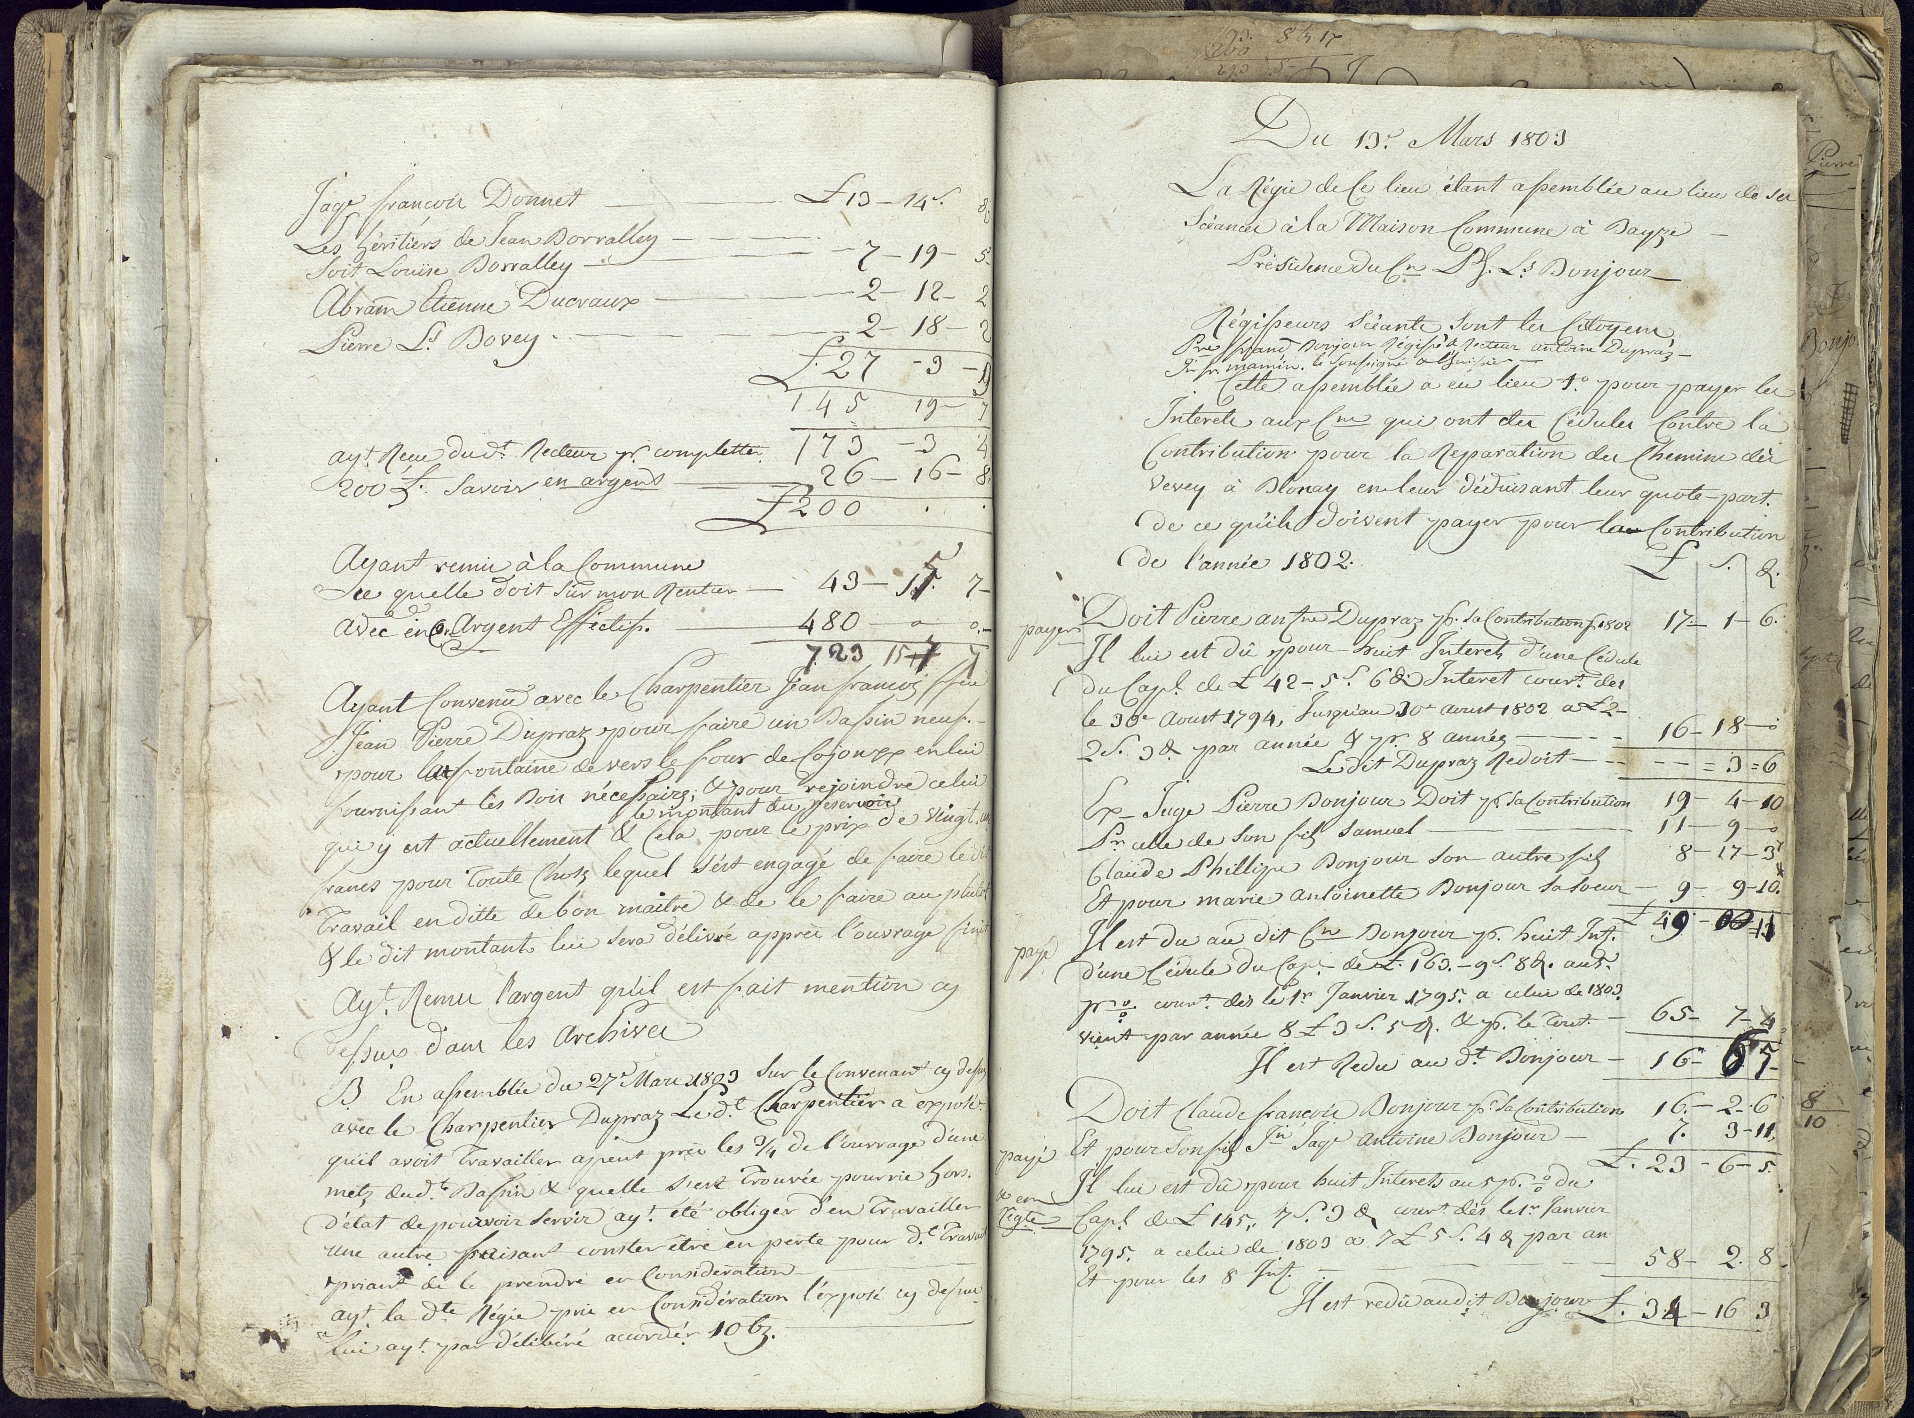 Jaqe françois Donnet — £ 13 – 14 s. 8
Les héritiers de Jean Borralley —
Soit Louïse Borralley — 7 – 19 – 5
Abram Etienne Ducraux — 2 – 12 – 2
Pierre Ls Bovey — 2 – 18 –
£ 27 – 3 –
145 19 – 7
173 – 3 4
ayt. Reçu dudt. Recteur pr. completter
200 £. Savoir en argent — 26 – 16 – 8
£ 200 . .
Ayant remis à la Commune
Ce quelle doit sur mon Rentier — 43 – 15. 7 –
avec en Argent Effectif. — 480 0 0. –
723 15 7
Ayant Convenu avec le Charpentier Jean françois ffeu
Jean Pierre Dupraz pour faire un Bassin neuf. –
pour la fontaine de vers le four de Cojonex en lui
fournissant les Bois nécessaire, & pour rejoindre celui
le montant du réservoir
qui y est actuellement & Cela pour le prix de vingt
francs pour toute Chose lequel s'est engagé de faire le dit
Travail en ditte de bon maitre & de le faire au plutot
& le dit montant lui sera délivré apprès l'ouvrage finit
Ayt. Remis l'argent qu'il est fait mention cy
dessus dans les Archives
B En assemblée du 27e Mars 1803 Sur le Convenant cy dessus
avec le Charpentier Dupraz Le dt. Charpentier a exposé
qu'il avoit Travailler apeut près les 3/4 de l'ouvrage d'une
metz dudt. Bassin & quelle s'est Trouvée pourrie hors.
d'état de pouvoir servir ayt. été obliger d'en Travailler
une autre faisant conster être en perte pour dt. Travail
priant de le prendre en Considération —
ayt. la dte Régie pris en Considération l'exposé cy dessus
lui ayt. par délibéré accordér 10 bz. —
Du 13e. Mars 1803
La Régie de Ce lieu étant assemblée au lieu de ses
Scéances à la Maison Commune à Bayze –
Présidence du Cn Ph. Ls Bonjour —
Régisseurs Scéants sont les Citoyens
Pre frand Bonjour Régisr & Recteur antoine Dupraz –
Jn fr. mamin. le Soussigné & l'huissier —
Cette assemblée a eu lieu 1°. pour payer les
Interets aux Cns qui ont des Cédules Contre la
Contribution pour la Reparation des Chemins dès
Vevey à Blonay en leur déduisant leur quote-part.
de ce qu'ils doivent payer pour la Contribution
de l'année 1802.
£ s. d.
payer Doit Pierre ante Dupraz pr. Sa Contribution p. 1802 17 – 1 – 6.
Il lui est dû pour huit Interets d'une Cédule
du Capl. de £ 42 – 5 s. 6 d. Interet court. dès
le 30e Aoust 1794, Jusqu'au 30e aoust 1802 a £ 2 –
2 s. 3 d. par année & pr. 8 années — 16 – 18 – 0
Le dit Dupraz Redoit — – – = 3 = 6
Ex – Juge Pierre Bonjour Doit pr sa Contribution 19 – 4 – 10
Pr celle de son fils Samuel — 11 – 9 – 0
Claude Phillipe Bonjour Son autre fils 8 – 17 – 3
Et pour marie antoinette Bonjour sa soeur – 9 – 9 – 10.
£ 49 – – 11
payé Il est du au dit Cn Bonjour pr. huit Int.
d'une Cédule du Cap. de £. 163. – 9 s. 8 d. au 5.
pr % court. dès le 1r Janvier 1795. a celui de 1803.
vient par année 8 £ 3 s. 5 d. & pr. le tout. – 65 – 7 – 4
Il est Redu au dt. Bonjour – 16 – 6 5 –
Doit Claude françois Bonjour pr sa Contribution 16. – 2 – 6
Et pour Son fils Jn Jaqe antoine Bonjour – 7. 3 – 11
£. 23 – 6 – 5.
payé
& en
Regte Il lui est dû pour huit Interets au 5 p. % du
Capl de £ 145,, 7 s. 3 d court. dès le 1r Janvier
1795. a celui de 1803 a 7 £ 5 s. 4 d par an
Et pour les 8 Int. — 58 – 2. 8
Il est redû au dit Bonjour £. 34 – 16 3